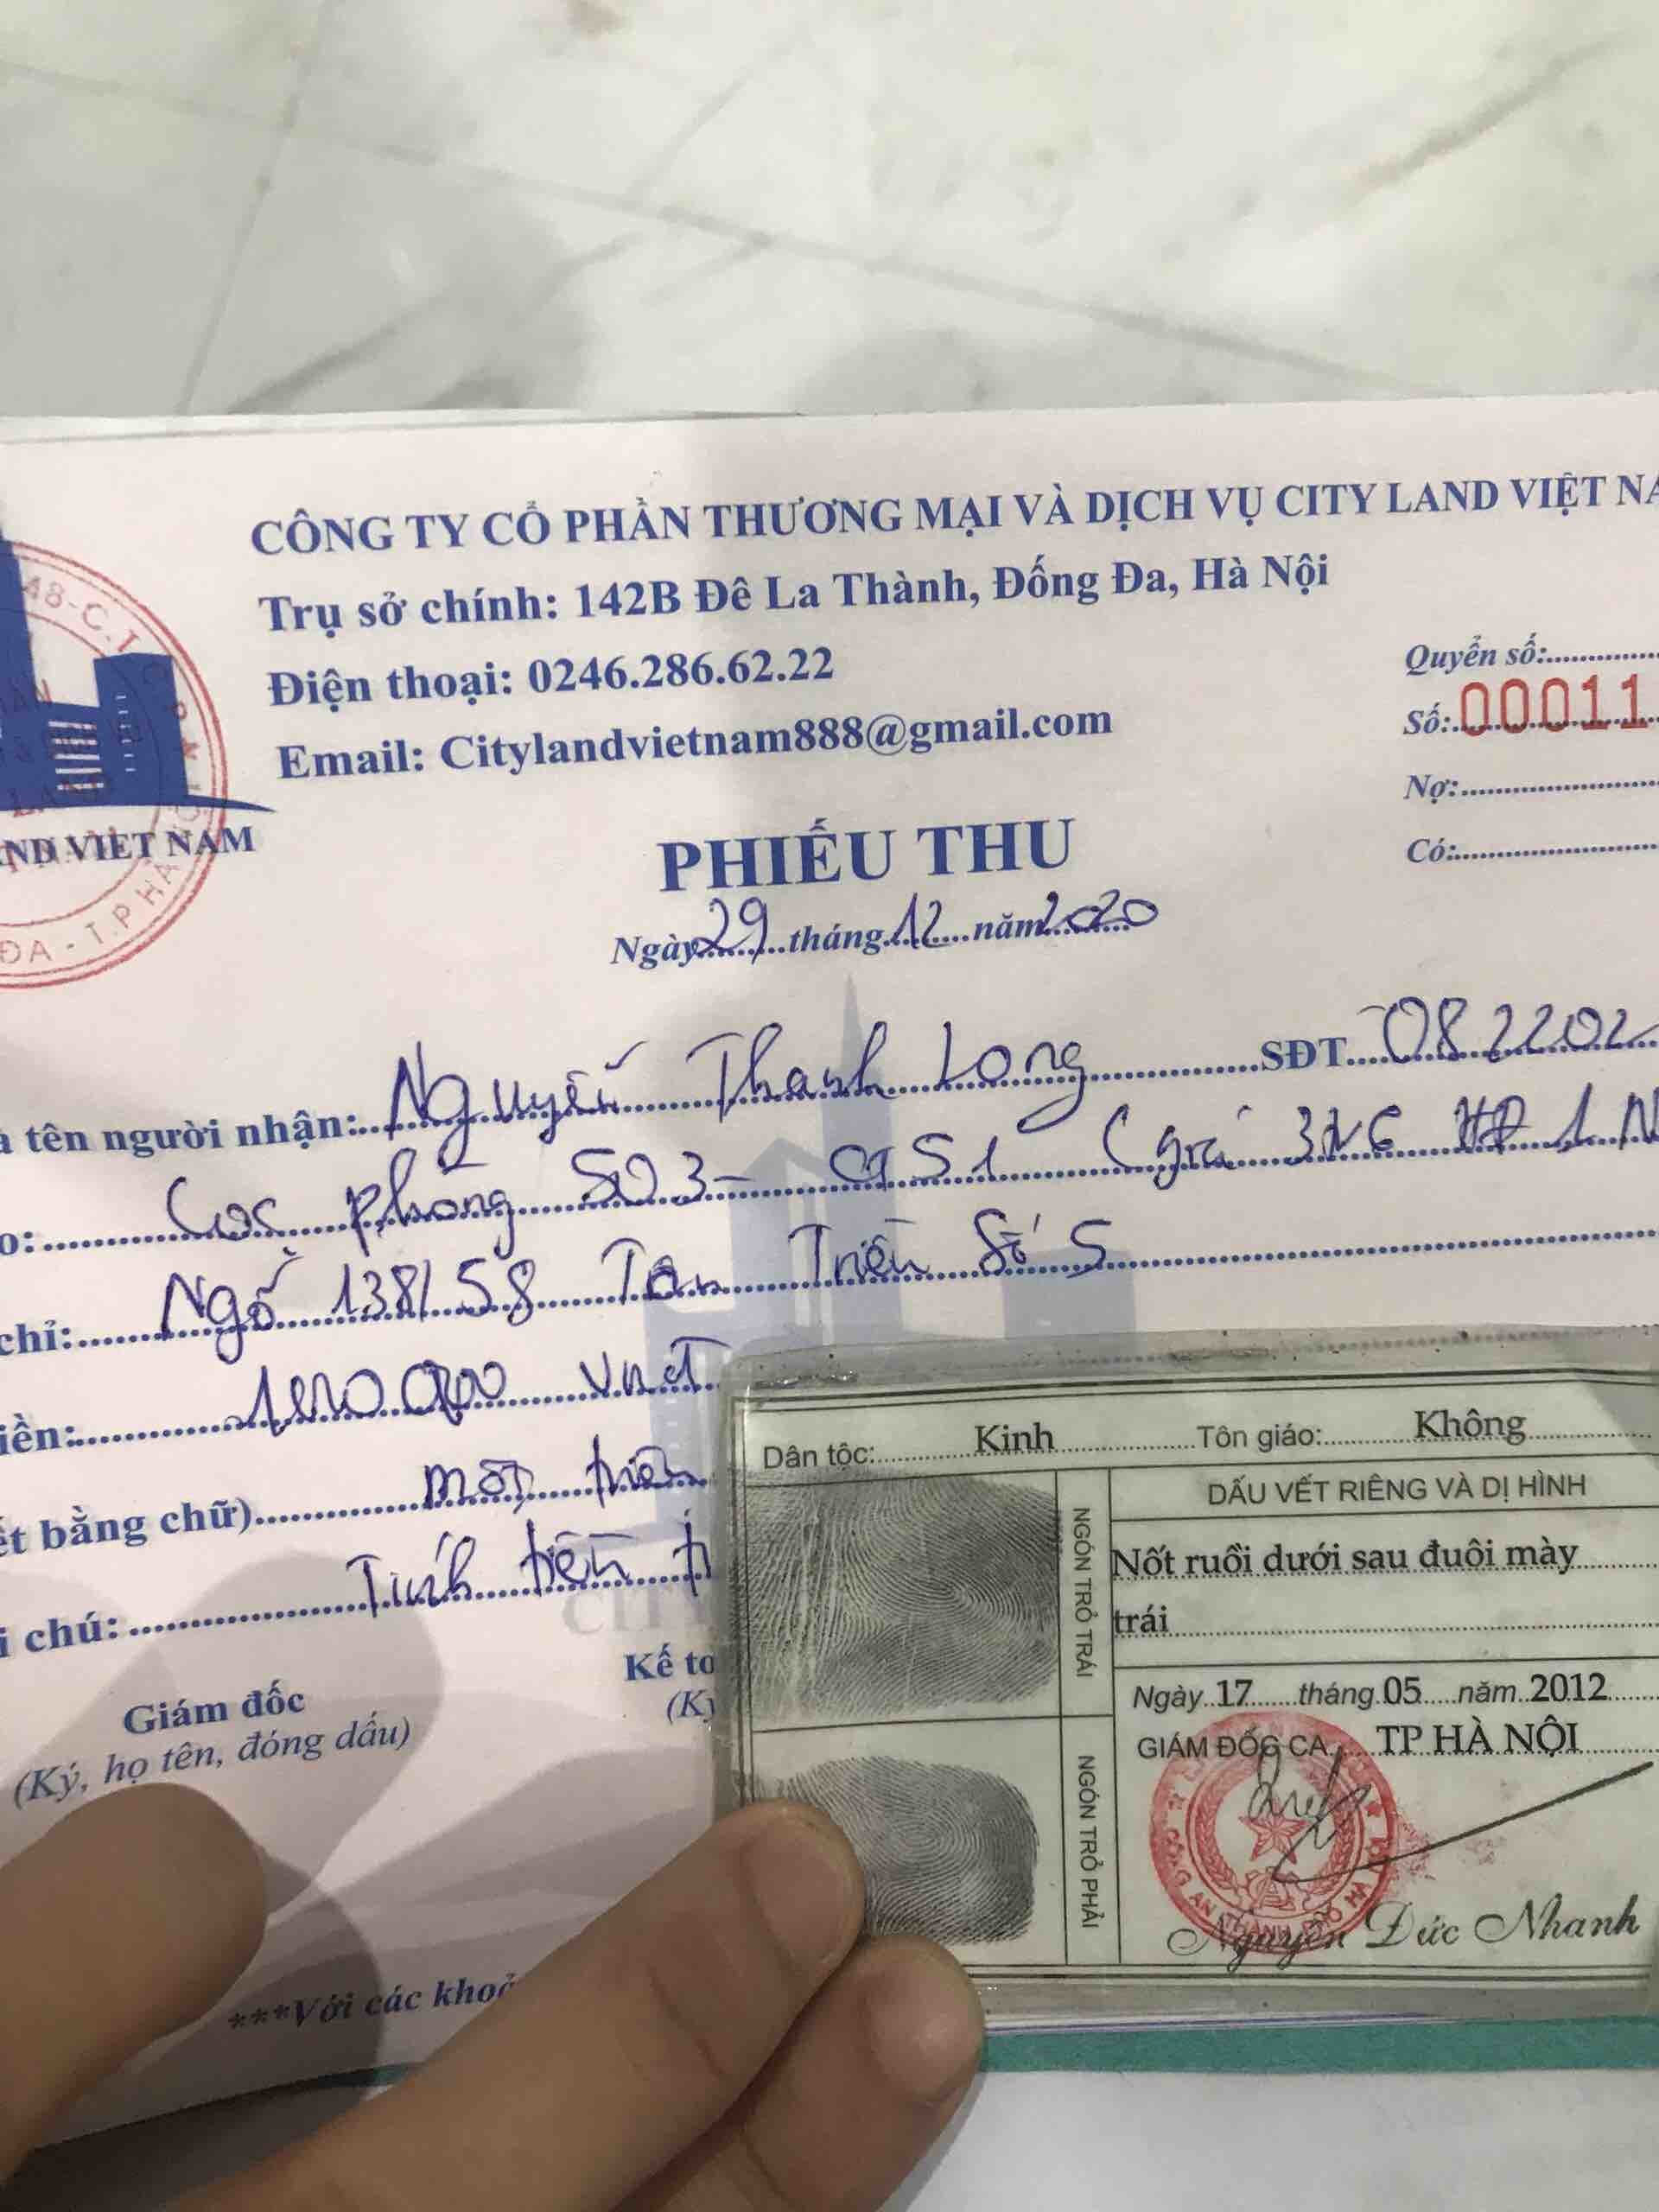 CÔNG TY CỔ PHẦN THƯƠNG MẠI VÀ DỊCH VỤ CITY LAND VIỆT NA
Trụ sở chính: 142B Đê La Thành, Đống Đa, Hà Nội
Điện thoại: 0246.286.62.22
Email: Citylandvietnam888@gmail.com
Quyển số:
Số: 00011
Nợ:
Có:
48-C.T
ND VIET NAM
ĐA - T.P HÀ
PHIẾU THU
Ngày 29 tháng 12 năm 2020
tên người nhận: Nguyễn Thanh Long SĐT 082202
o: Cọc phòng 503- (giá 3tr6 HĐ 1 N
chỉ: Ngõ 138/58 Tân Triều Số 5
iền: vnđ
ết bằng chữ) một triệu
i chú: Tính tiền
Giám đốc
(Ký, họ tên, đóng dấu)
Kế to
(Ký
***Với các khoả
Dân tộc: Kinh Tôn giáo: Không
DẤU VẾT RIÊNG VÀ DỊ HÌNH
NGÓN TRỎ TRÁI
Nốt ruồi dưới sau đuôi mày
trái
Ngày 17 tháng 05 năm 2012
GIÁM ĐỐC CA TP HÀ NỘI
NGÓN TRỎ PHẢI
CÔNG AN THÀNH PHỐ HÀ NỘI
Nguyễn Đức Nhanh